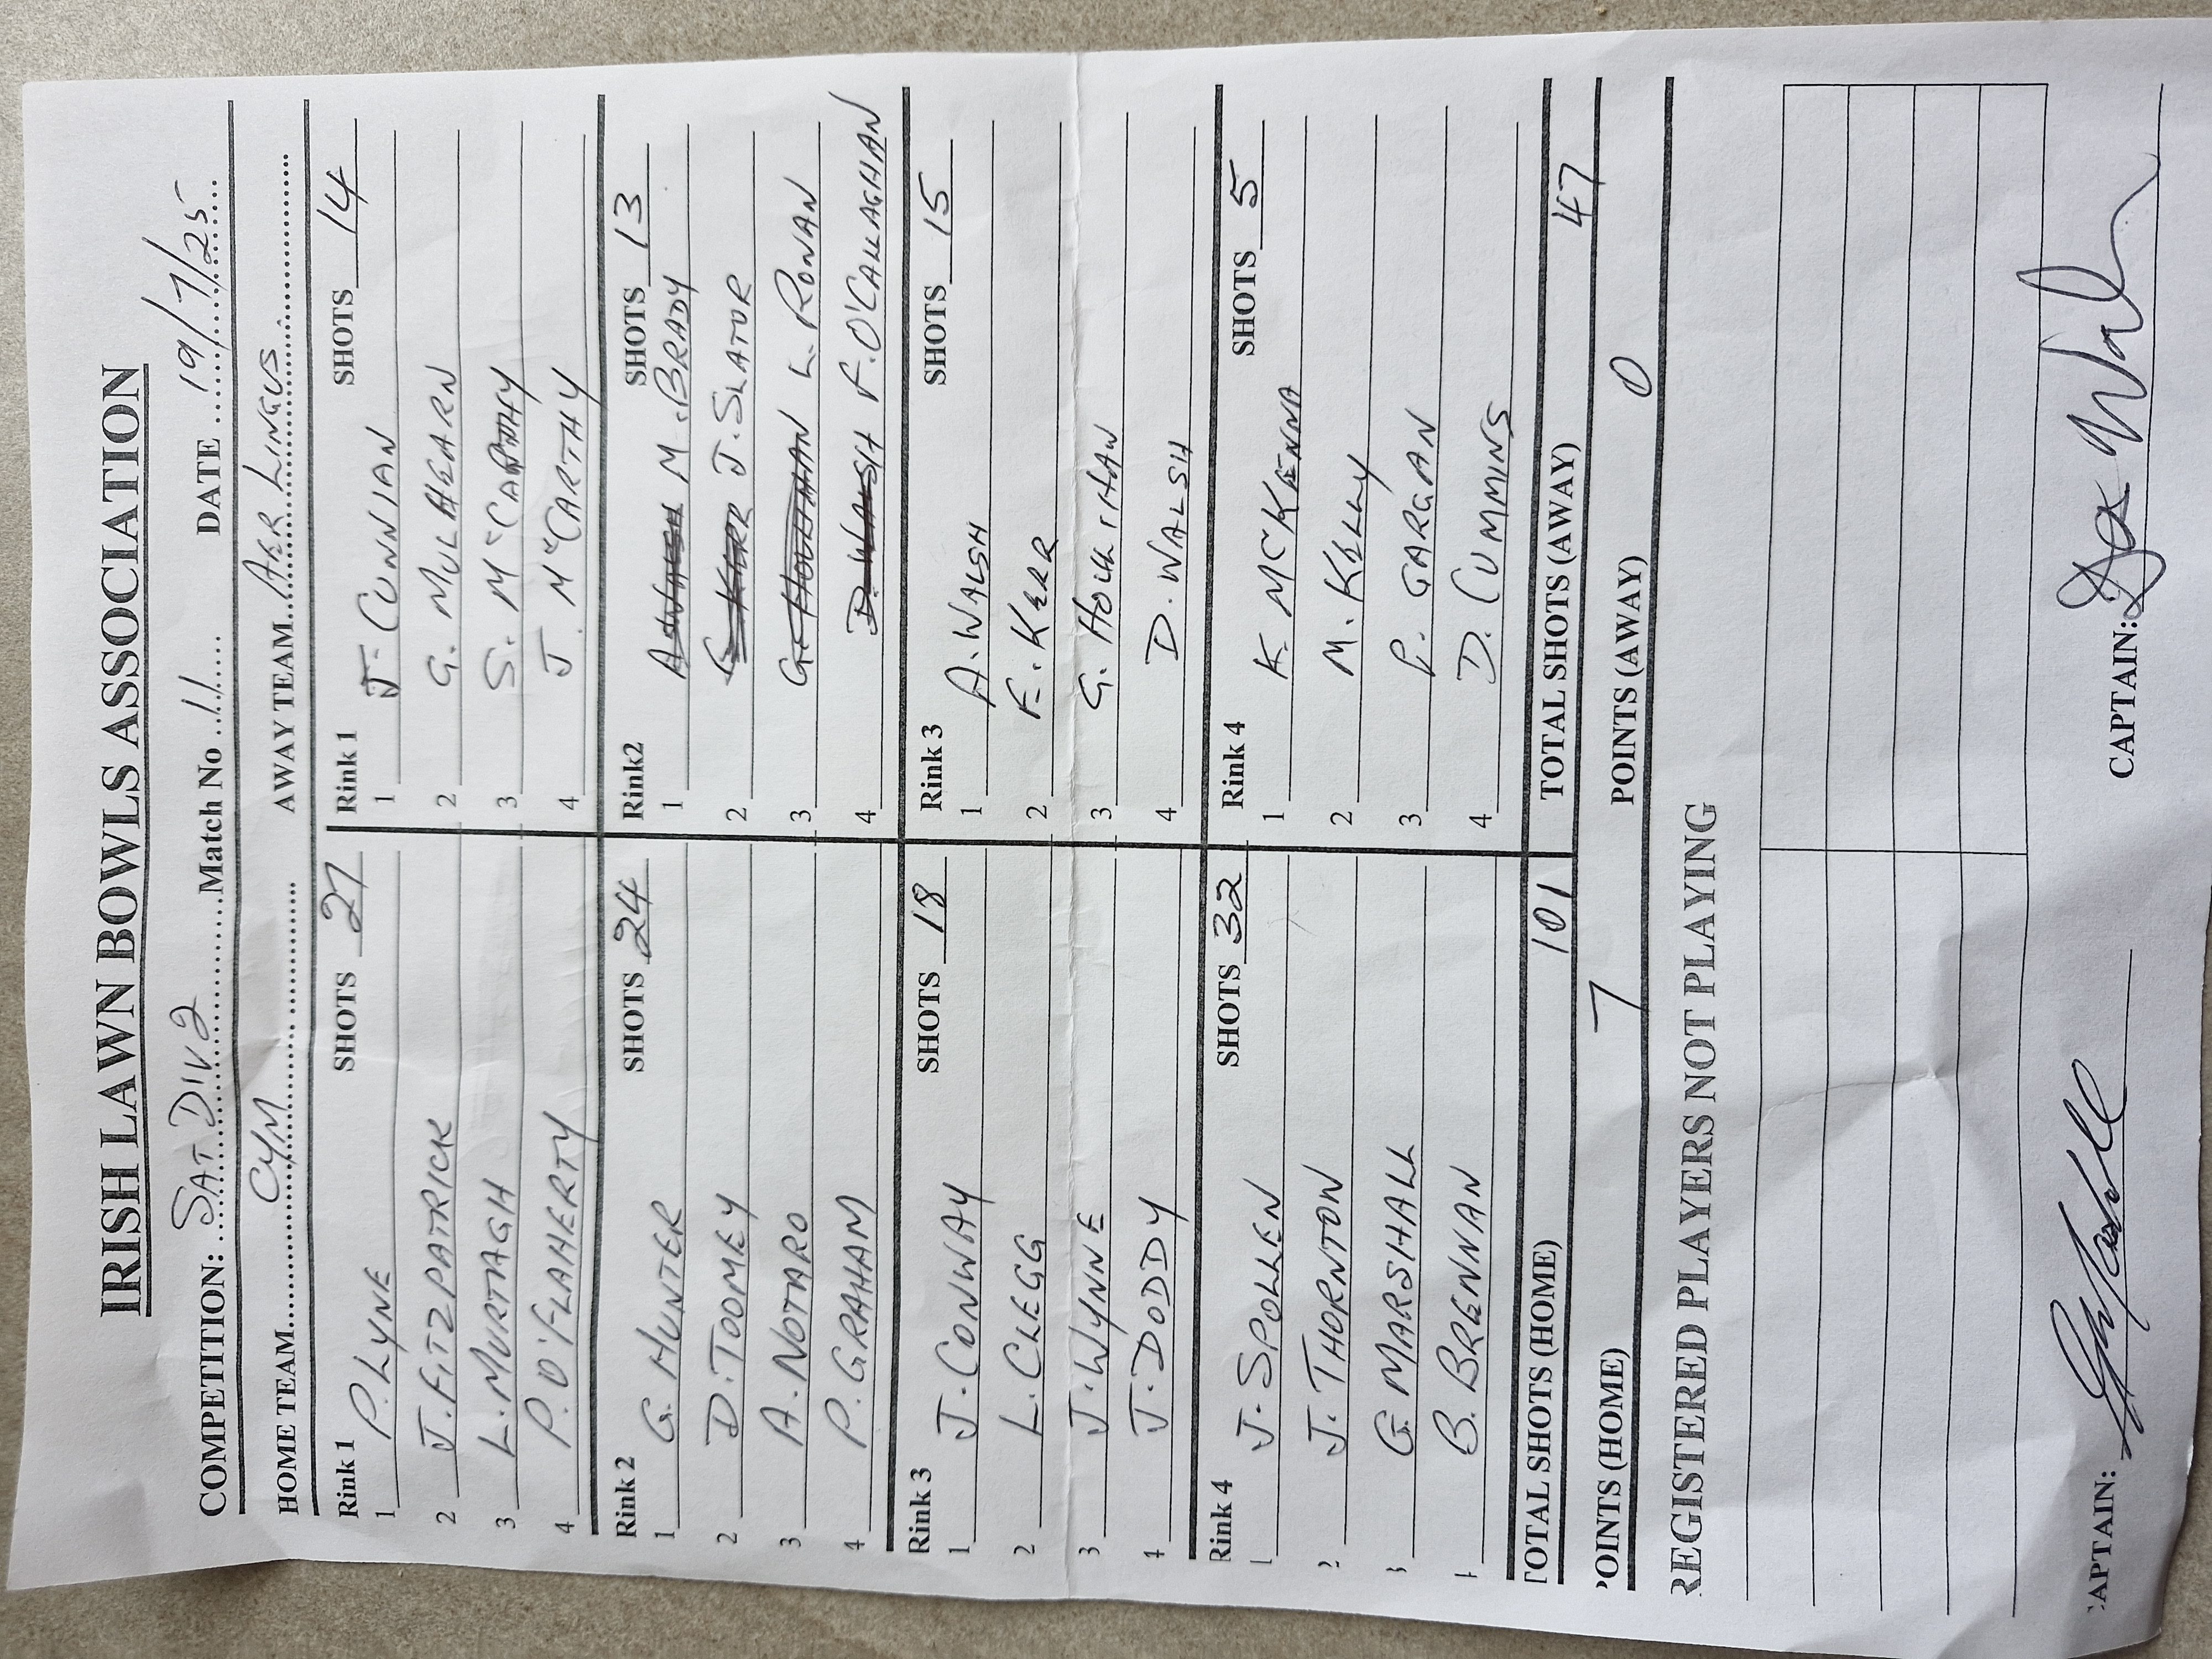 IRISH LAWN BOWLS ASSOCIATION
COMPETITION: SAT DIV 2 Match No 11 DATE 19/7/25
HOME TEAM CYM AWAY TEAM AER LINGUS
Rink 1 SHOTS 27
1 P. LYNE
2 J. FITZPATRICK
3 L. MURTAGH
4 P. O'FLAHERTY
Rink 1 SHOTS 14
1 J. CUNNIAN
2 G. MULHEARN
3 S. McCARTHY
4 J. McCARTHY
Rink 2 SHOTS 24
1 G. HUNTER
2 D. TOOMEY
3 A. NOTARO
4 P. GRAHAM
Rink2 SHOTS 13
1 A. WALSH M. BRADY
2 J. SLATOR
3 G. HOULIHAN L. RONAN
4 D. WALSH F. O'CALLAGHAN
Rink 3 SHOTS 18
1 J. CONWAY
2 L. CLEGG
3 J. WYNNE
4 J. DODDY
Rink 3 SHOTS 15
1 A. WALSH
2 F. KERR
3 G.
4 D. WALSH
Rink 4 SHOTS 32
J. SPOLLEN
J. THORNTON
G. MARSHALL
B. BRENNAN
Rink 4 SHOTS 5
1 K. MCKENNA
2 M. KELLY
3 P. GARGAN
4 D. CUMMINS
TOTAL SHOTS (HOME) 101 TOTAL SHOTS (AWAY) 47
POINTS (HOME) 7 POINTS (AWAY) 0
REGISTERED PLAYERS NOT PLAYING
CAPTAIN: CAPTAIN: